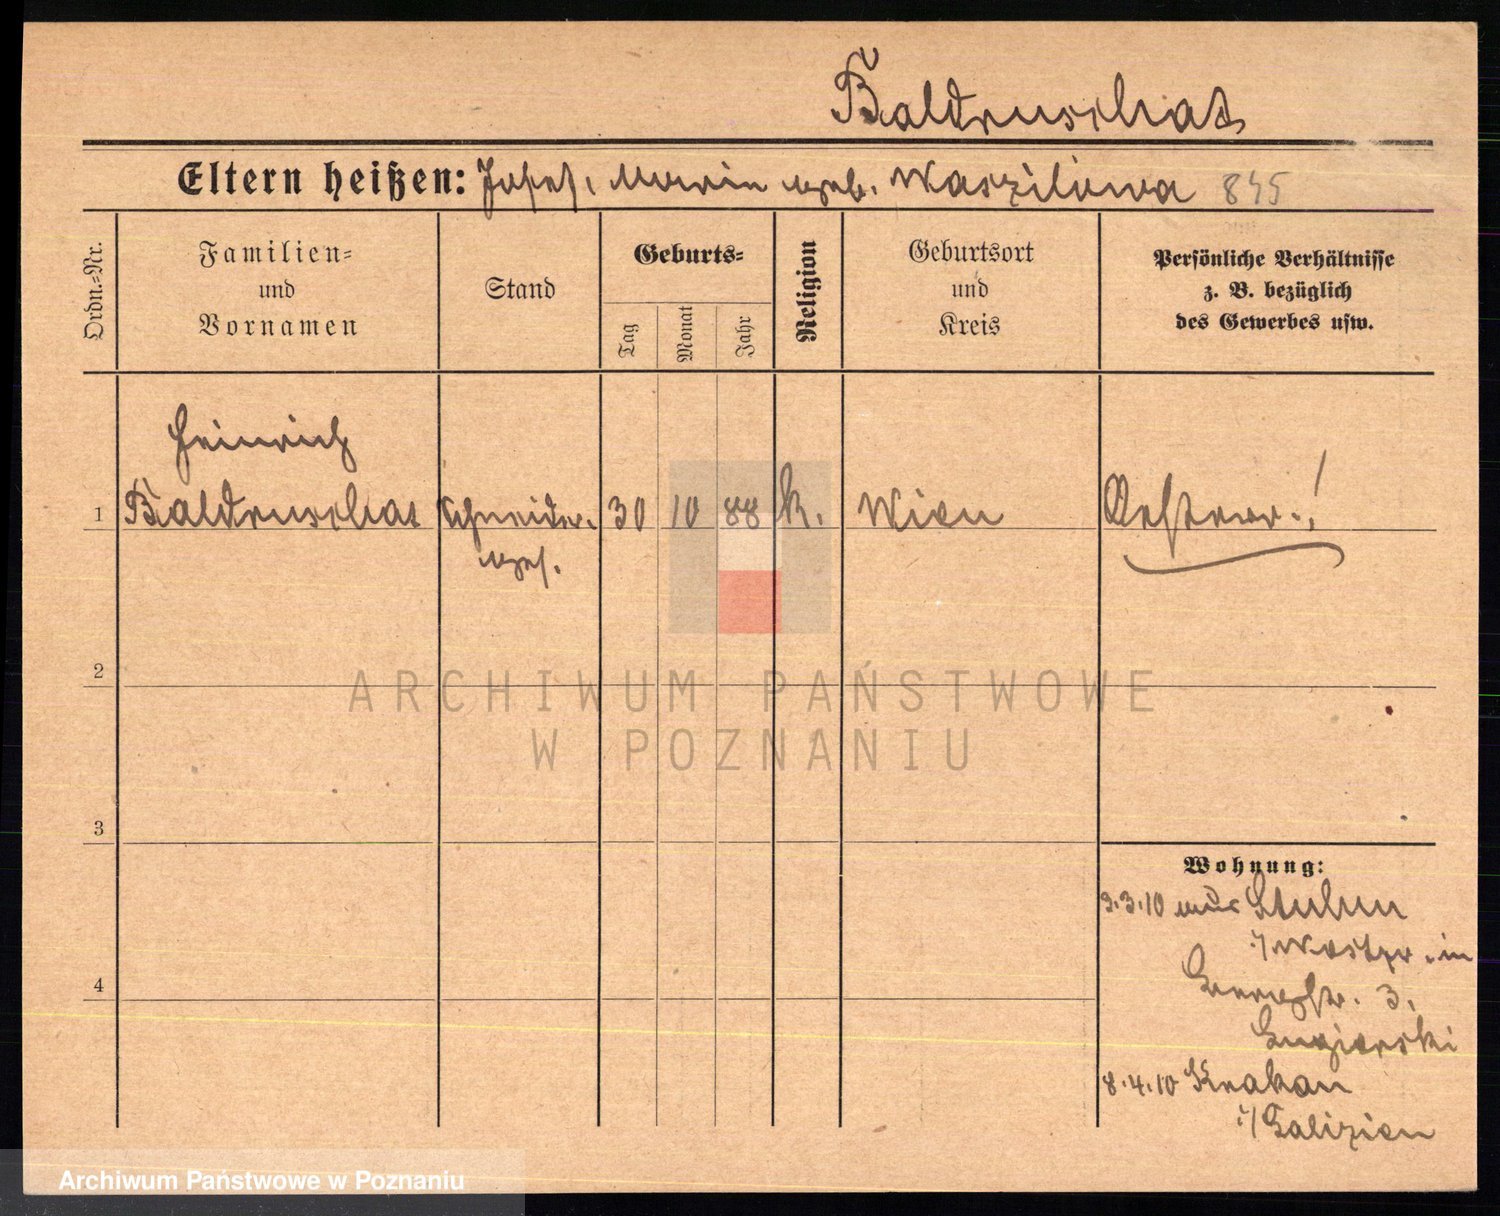 Baldruschat
Eltern heißen: Josef, Maria geb. Waszilowa 845
Ordn.-Nr.
Familien-
und
Vornamen
Stand
Geburts-
Tag
Monat
Jahr
Religion
Geburtsort
und
Kreis
Persönliche Verhältnisse
z. B. bezüglich
des Gewerbes usw.
Heinrich
1 Baldruschat Schneider- 30 10 88 k. Wien Oesterr.!
ges.
2
ARCHIWUM PAŃSTWOWE
W POZNANIU
3
Wohnung:
3.3.10 aus
i/ in
3.
4
8.4.10 Krakau
i/Galizien
Archiwum Państwowe w Poznaniu